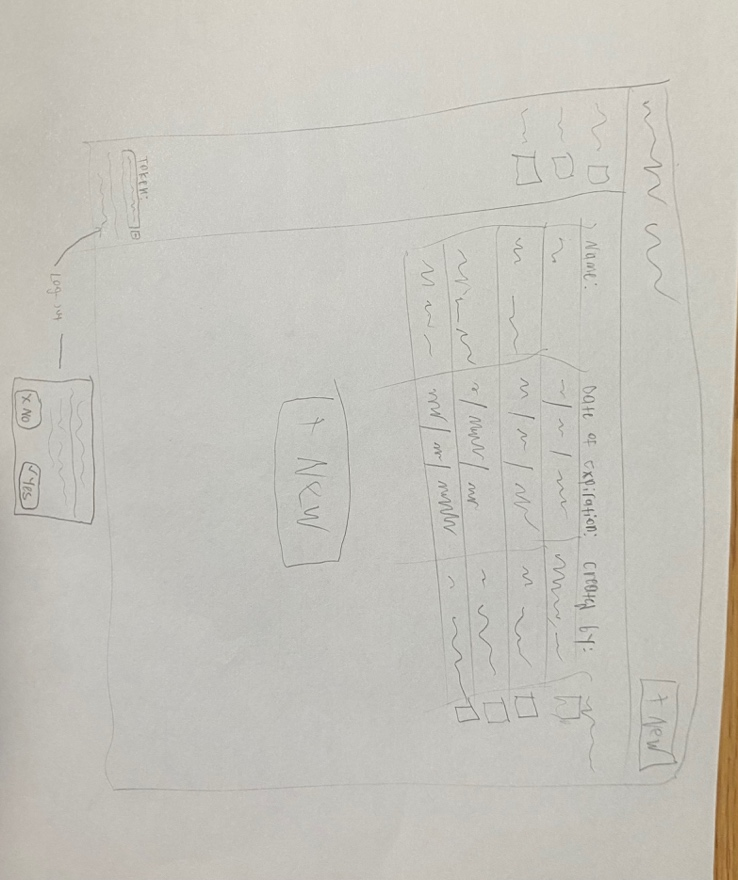 + New
Name: Date of expiration: Created by:
+ New
Token:
Log-in
X No ✓ Yes